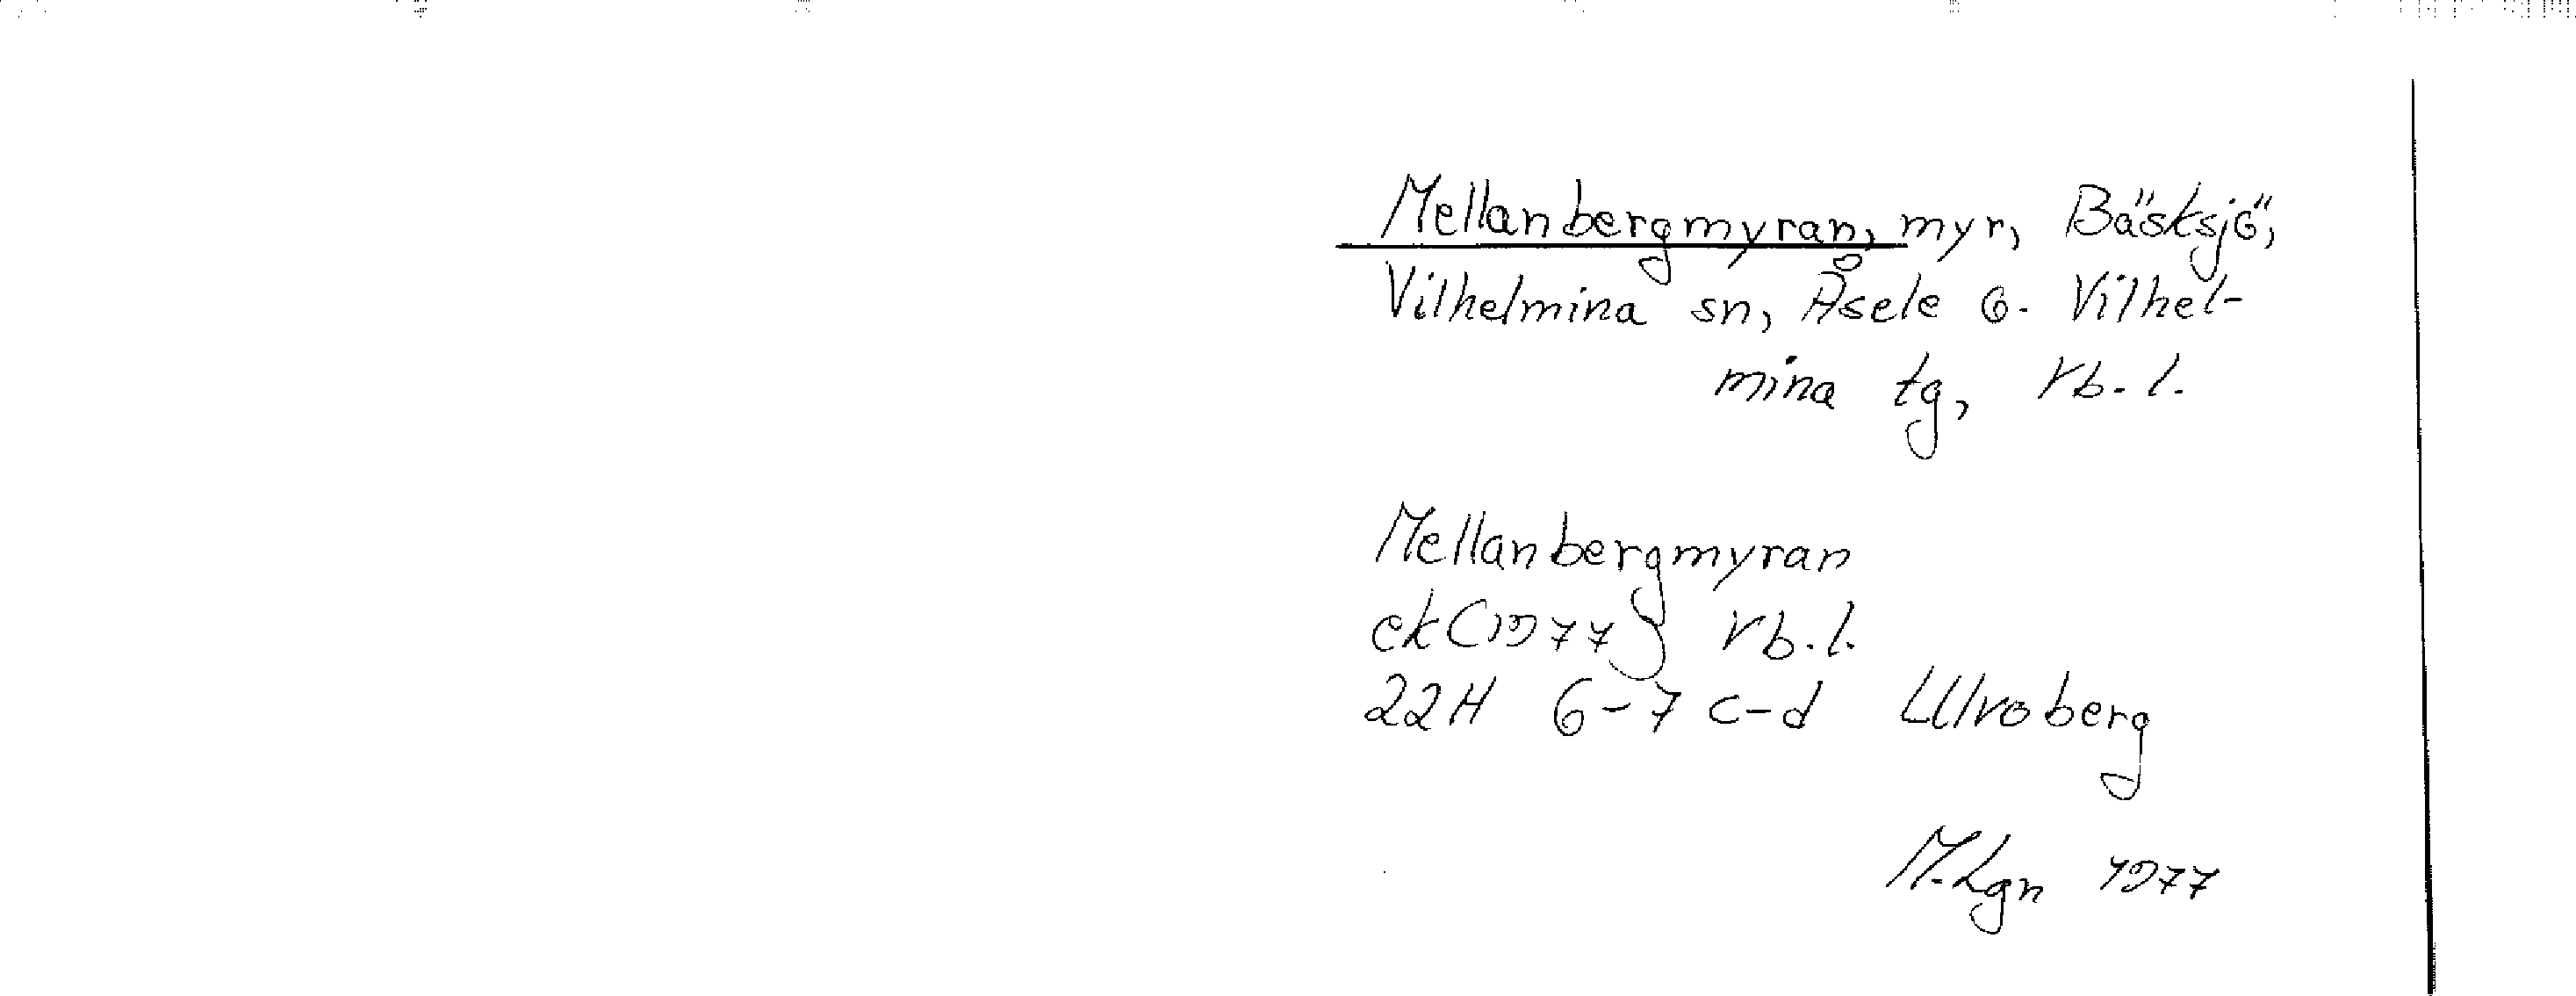 Mellanbergmyran, myr, Bäsksjö,
Vilhelmina sn, Åsele o. Vilhel-
mina tg, Vb. l.
Mellanbergmyran
ek (1977) Vb. l.
22H 6-7 c-d Ulvoberg
M. Lgn 1977